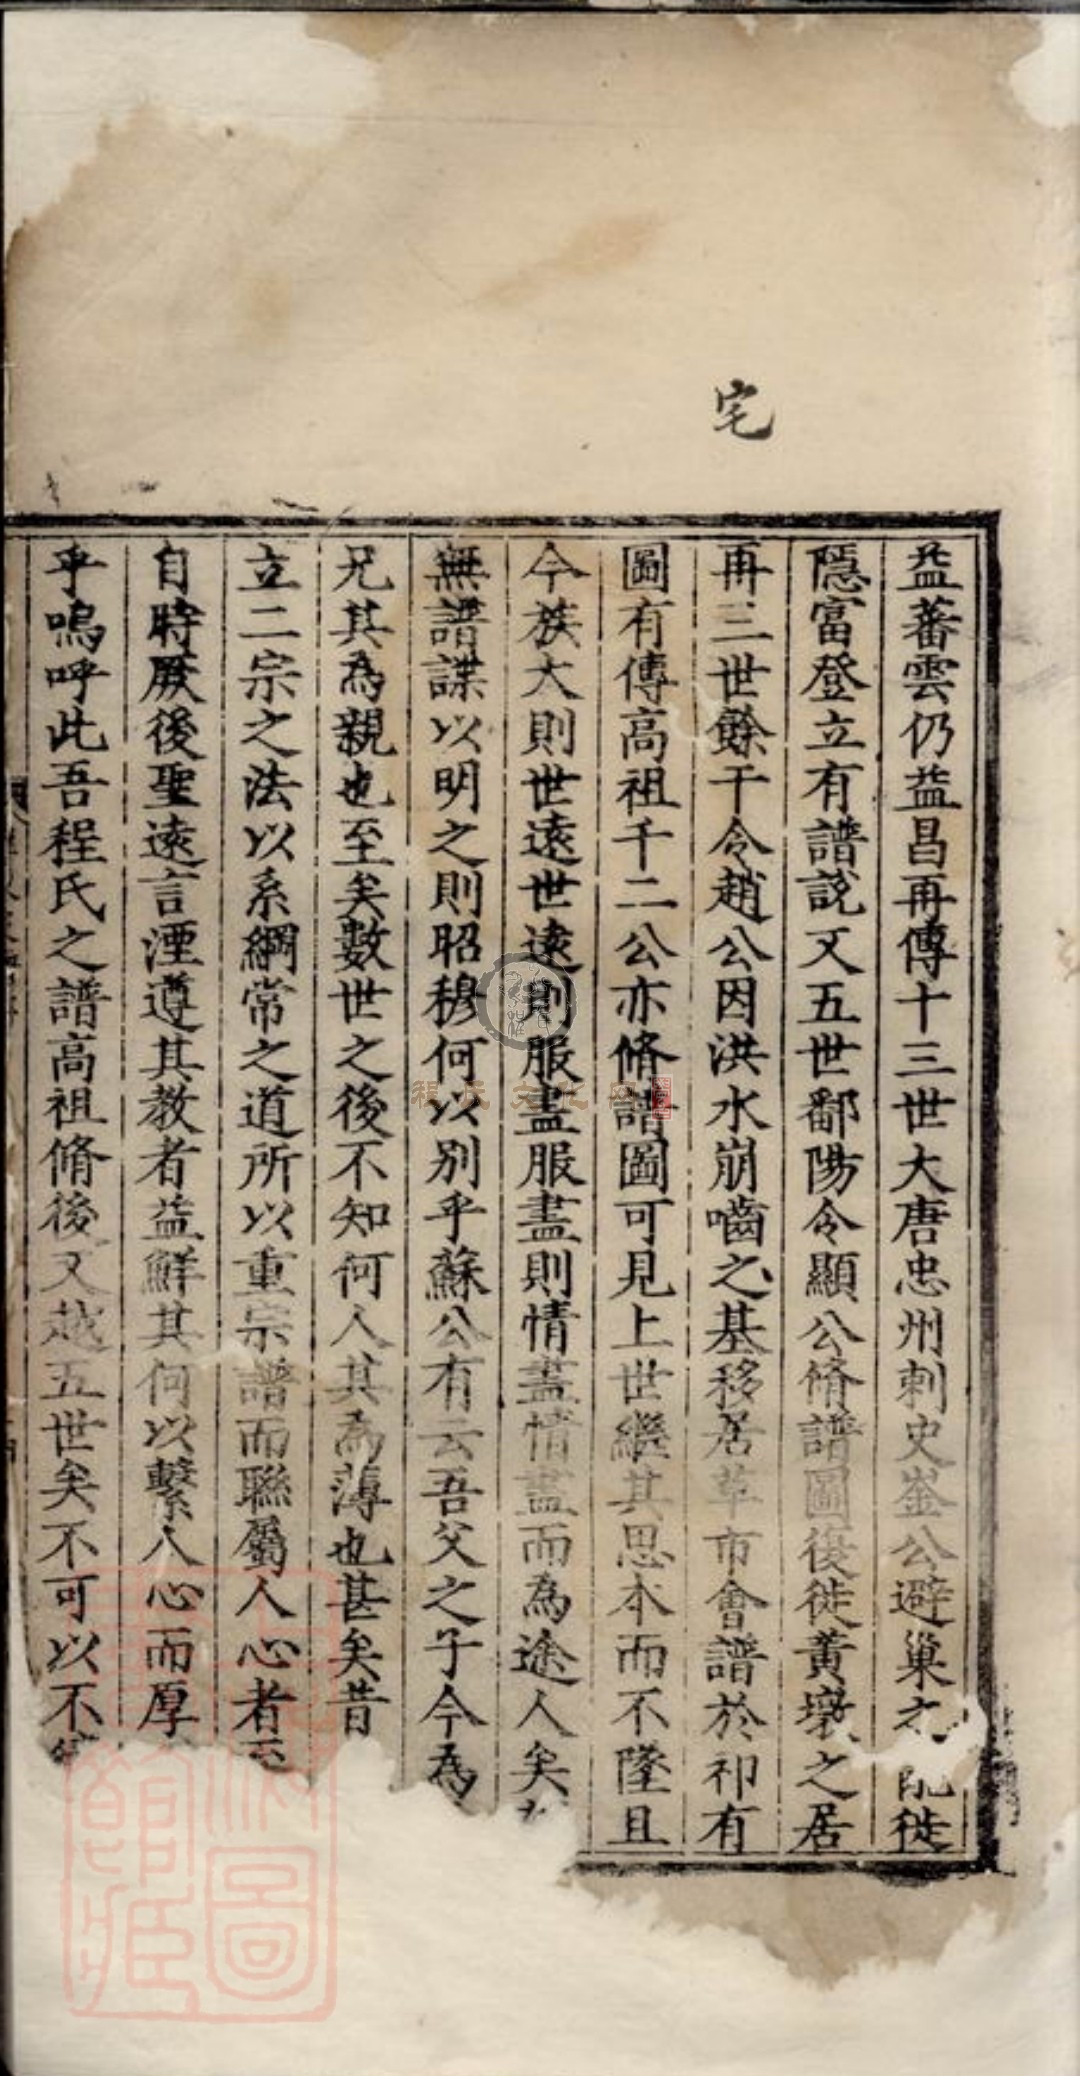 宅
益蕃雲仍益昌再傳十三世大唐忠州刺史崟公避巢之亂徙
隱富登立有譜說又五世鄱陽令顯公脩譜圖後徙黃墩之居
再三世餘干令趙公因洪水崩嚙之基移居草市會譜於祁有
圖有傳高祖千二公亦脩譜圖可見上世繼其思本而不墜且
今族大則世遠世遠則服盡服盡則情盡情盡而為途人矣
無譜諜以明之則昭穆何以別乎蘇公有云吾父之子今為
兄其為親也至矣數世之後不知何人其為薄也甚矣昔
立二宗之法以系綱常之道所以重宗譜而聯屬人心者至
自時厥後聖遠言湮遵其教者益鮮其何以繫人心而厚
乎嗚呼此吾程氏之譜高祖脩後又越五世矣不可以不
程氏文化网